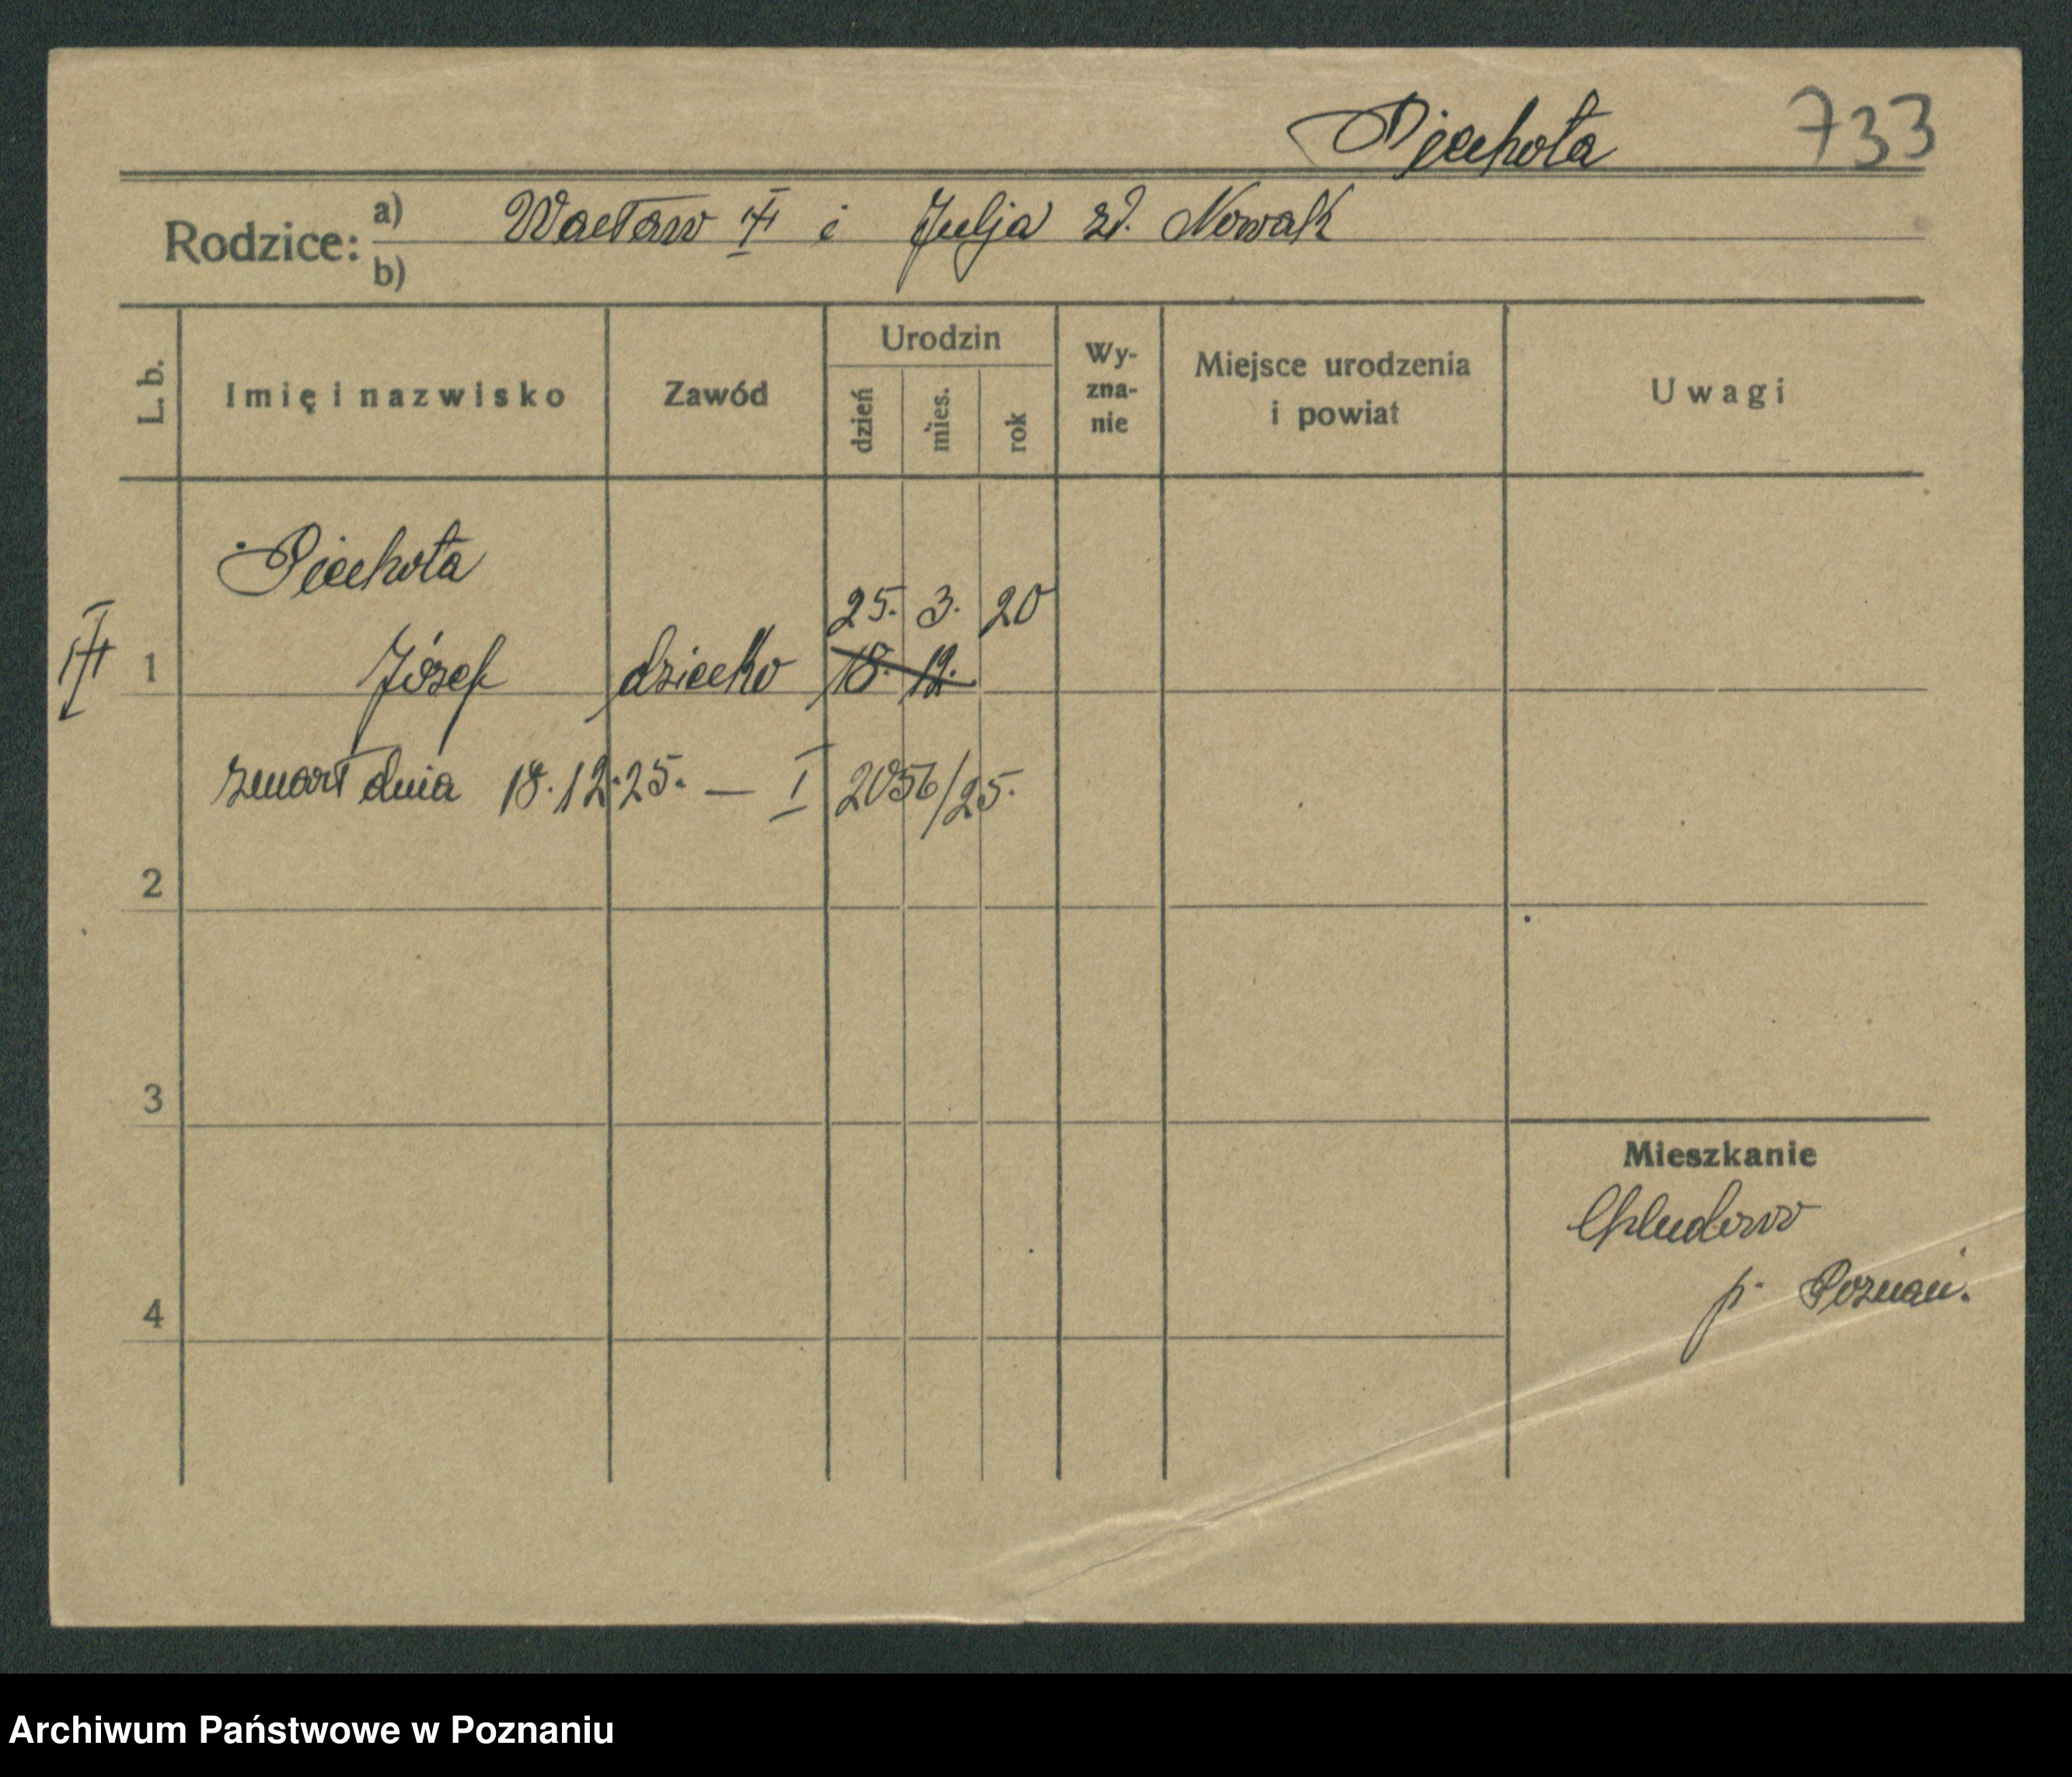 Piechota 733
Rodzice: a) Wacław i Julja zd. Nowak
b)
L. b. Imię i nazwisko Zawód Urodzin dzień mies. rok Wy-zna-nie Miejsce urodzenia i powiat Uwagi
Piechota
25. 3. 20
1 Józef dziecko 18. 12.
zmarł dnia 18.12.25. — I 2056/25.
2
3
Mieszkanie
Chludowo
p. Poznań.
4
Archiwum Państwowe w Poznaniu